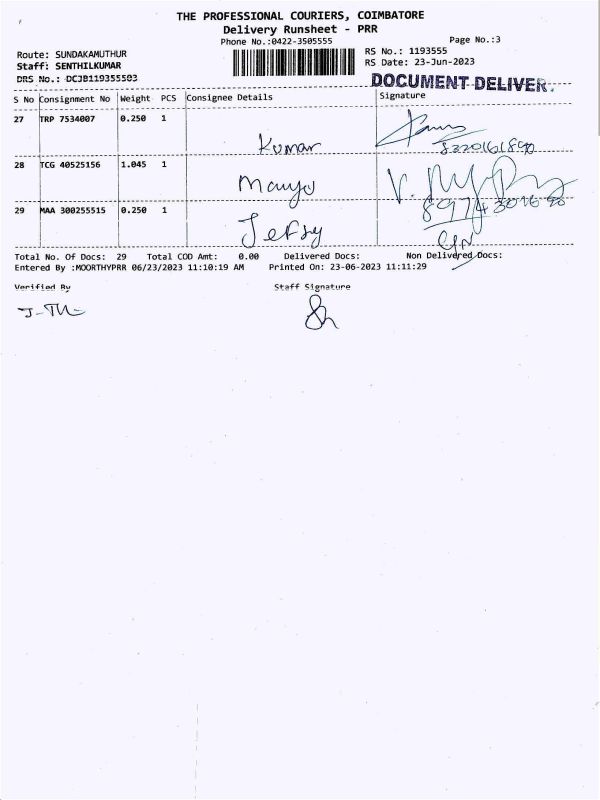 THE PROFESSIONAL COURIERS, COIMBATORE
Delivery Runsheet - PRR
Phone No.:0422-3505555
Page No.:3
Route: SUNDAKAMUTHUR
RS No.: 1193555
Staff: SENTHILKUMAR
RS Date: 23-Jun-2023
DRS No.: DCJB119355503
DOCUMENT DELIVER.
S No Consignment No Weight PCS Consignee Details Signature
27 TRP 7534007 0.250 1
Kumar
8220161890
28 TCG 40525156 1.045 1
29 MAA 300255515 0.250 1
Total No. Of Docs: 29 Total COD Amt: 0.00 Delivered Docs: Non Delivered Docs:
Entered By :MOORTHYPRR 06/23/2023 11:10:19 AM Printed On: 23-06-2023 11:11:29
Verified By Staff Signature